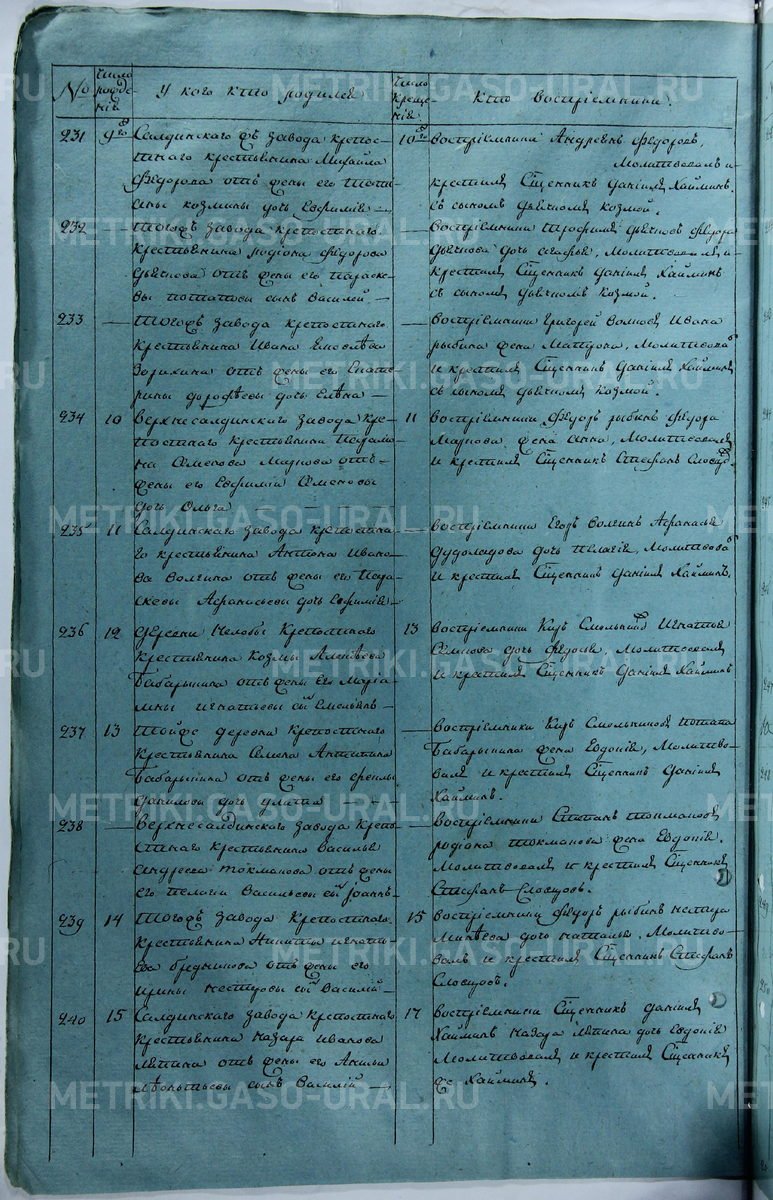 №
Число рожденія
У кого кто родился
Число крещенія
Кто воспріемники
231
9го
Салдинскаго же завода крепос-
тнаго крестьянина Михайла
Федорова отъ жены его Тать
яны Козмины дочь Евфимія
10го
Воспріемники Андреянъ Федоровъ,
Молитвовалъ и
крестилъ Сщенникъ Даніилъ Хайминъ
съ сыномъ дьячкомъ Козмой.
232
Тогожъ завода крепостнаго
крестьянина Родиона Федорова
Дьячкова отъ жены его Параске-
вы Потаповы сынъ Василей
Воспріемники Трофимъ Дьячковъ Федора
Дьячкова дочь Молитвовалъ и
крестилъ Сщенникъ Даніилъ Хайминъ
съ сыномъ дьячкомъ Козмой.
233
Тогожъ завода крепостнаго
крестьянина Ивана Яковлева
Зорихина отъ жены его Екате-
рины Дорофѣевы дочь Елена
Воспріемники Григорей Волковъ Ивана
Рыбина жена Матрона, Молитвовалъ
и крестилъ Сщенникъ Даніилъ Хайминъ
съ сыномъ дьячкомъ Козмой.
234
10
Верхнесалдинскаго завода кре-
постнаго крестьянина
Маркова отъ
жены его Евфиміи Семеновы
дочь Ольга
11
Воспріемники Федоръ Рыбинъ Федора
Маркова жена Анна, Молитвовалъ
и крестилъ Сщенникъ Стефанъ Словцовъ.
235
11
Салдинскаго завода крепостна-
го крестьянина Антона Ивано-
ва Волгина отъ жены его Пара-
скевы Афанасьевы дочь Евфимія
Воспріемники Егоръ Волгинъ Афанасья
дочь Пелагія, Молитвовалъ
и крестилъ Сщенникъ Даніилъ Хайминъ.
236
12
Деревни Нелобы крепостнаго
крестьянина Козмы Алексѣева
Бабарыкина отъ жены его Марiа-
мны Игнатьевы сынъ Емельянъ
13
Воспріемники Киръ Смольниковъ Игнатья
Семенова дочь Федосья, Молитвовалъ
и крестилъ Сщенникъ Даніилъ Хайминъ
237
13
Тойже деревни крепостнаго
крестьянина Семена Антипина
Бабарыкина отъ жены его
Даниловы дочь Улита
Воспріемники Киръ Смольниковъ Потапа
Бабарыкина жена Евдокія, Молитво-
валъ и крестилъ Сщенникъ Даніилъ
Хайминъ.
238
Верхнесалдинскаго завода крепо-
стнаго крестьянина Василья
Андреева Токманова отъ жены
его Пелагии Васильевы сынъ Іоаннъ
Воспріемники Степанъ Токмановъ
Родиона Токманова жена Евдокія.
Молитвовалъ и крестилъ Сщенникъ
Стефанъ Словцовъ.
239
14
Тогожъ завода крепостнаго
крестьянина Никиты Игнать-
ева отъ жены его
Ирины Нестеровы сынъ Василій
15
Воспріемники Федоръ Рыбинъ Нестера
Михѣева дочь Наталья. Молитво-
валъ и крестилъ Сщенникъ Стефанъ
Словцовъ.
240
15
Салдинскаго завода крепостнаго
крестьянина Назара Иванова
Лятина отъ жены его Акилины
сынъ Василій
17
Воспріемники Сщенникъ Даніилъ
Хайминъ Назара Лятина дочь Евдокія
Молитвовалъ и крестилъ Сщенникъ
же Хайминъ.
METRIKI.GASO-URAL.RU